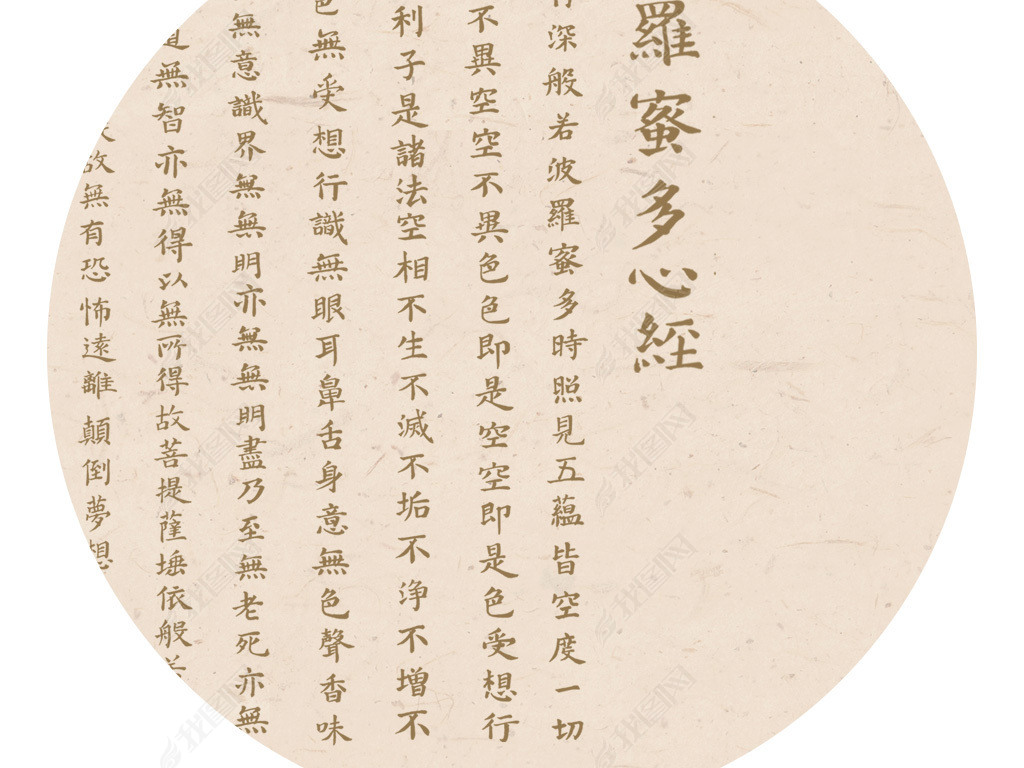 羅蜜多心經
深般若波羅蜜多時照見五蘊皆空度一切
不異空空不異色色即是空空即是色受想行
利子是諸法空相不生不滅不垢不淨不增不
色無受想行識無眼耳鼻舌身意無色聲香味
無意識界無無明亦無無明盡乃至無老死亦無
無智亦無得以無所得故菩提薩埵依般
故無有恐怖遠離顛倒夢想
我图网